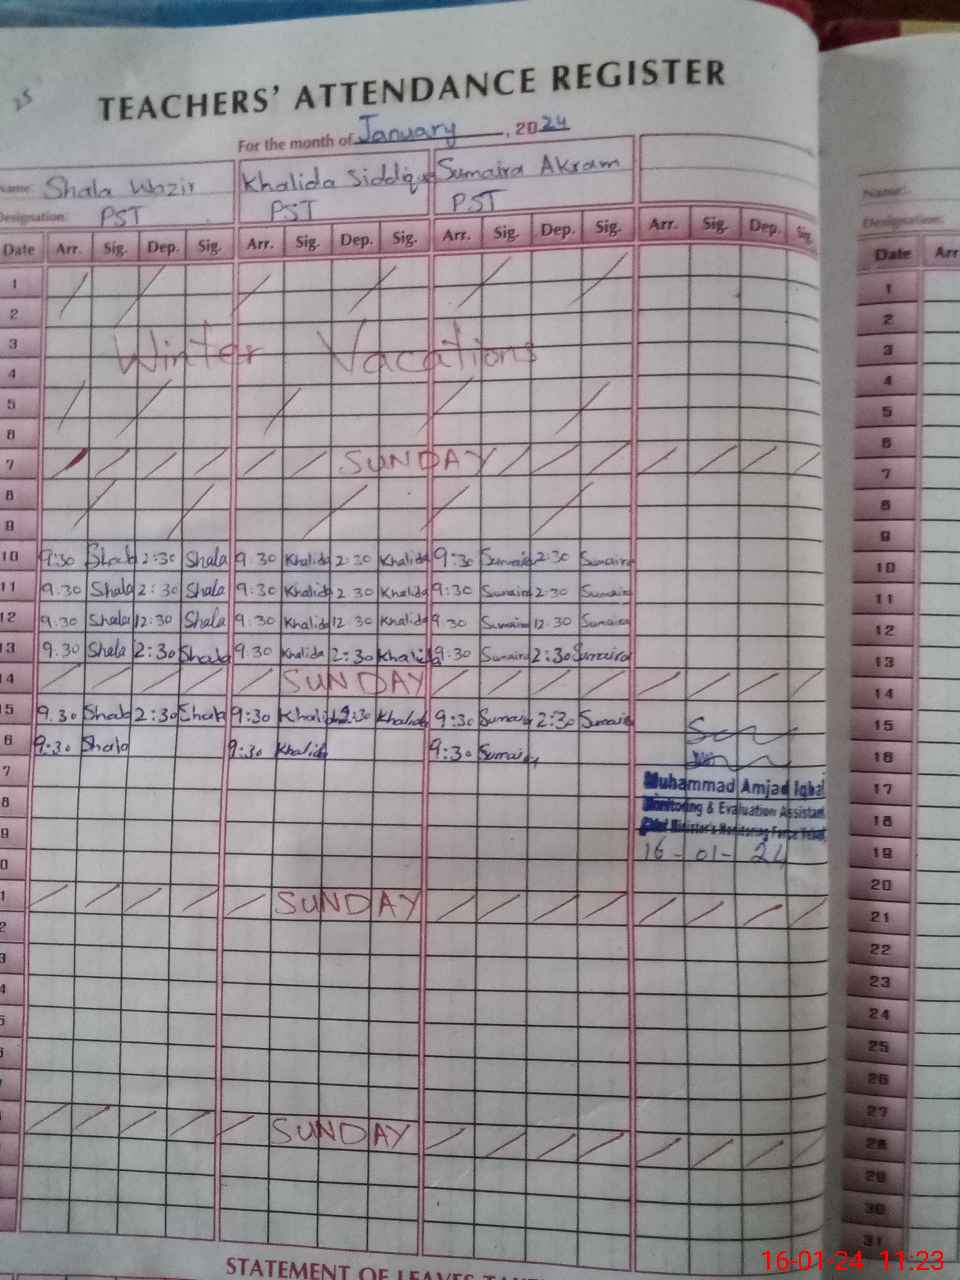 25
TEACHERS' ATTENDANCE REGISTER
For the month of January, 2024
Name: Shala Wazir Khalida Siddique Sumaira Akram Name:
Designation: PST PST PST Designation:
Date Arr. Sig. Dep. Sig. Arr. Sig. Dep. Sig. Arr. Sig. Dep. Sig. Arr. Sig. Dep. Sig. Date Arr
1 1
2 2
3 Winter Vacations 3
4 4
5 5
6 6
7 SUNDAY 7
8 8
9 9
10 9:30 Shala 2:30 Shala 9.30 Khalida 2:30 Khalida 9:30 Sumaira 2:30 Sumaira 10
11 9.30 Shala 2:30 Shala 9.30 Khalida 2.30 Khalida 9:30 Sumaira 2.30 Sumaira 11
12 9.30 Shala 12:30 Shala 9.30 Khalida 12.30 Khalida 9.30 Sumaira 12.30 Sumaira 12
13 9.30 Shala 2:30 Shala 9.30 Khalida 2:30 Khalida 9:30 Sumaira 2:30 Sumaira 13
14 SUNDAY 14
15 9.30 Shala 2:30 Shala 9:30 Khalida 2:30 Khalida 9:30 Sumaira 2:30 Sumaira 15
6 9:30 Shala 9:30 Khalida 9:30 Sumaira 16
7 Muhammad Amjad Iqbal 17
8 Monitoring & Evaluation Assistant 18
9 Chief Minister's Monitoring Force 19
0 16-01-24 20
1 SUNDAY 21
2 22
3 23
4 24
5 25
6 26
27
SUNDAY 28
29
30
31
STATEMENT OF LEAVES
16-01-24 11:23